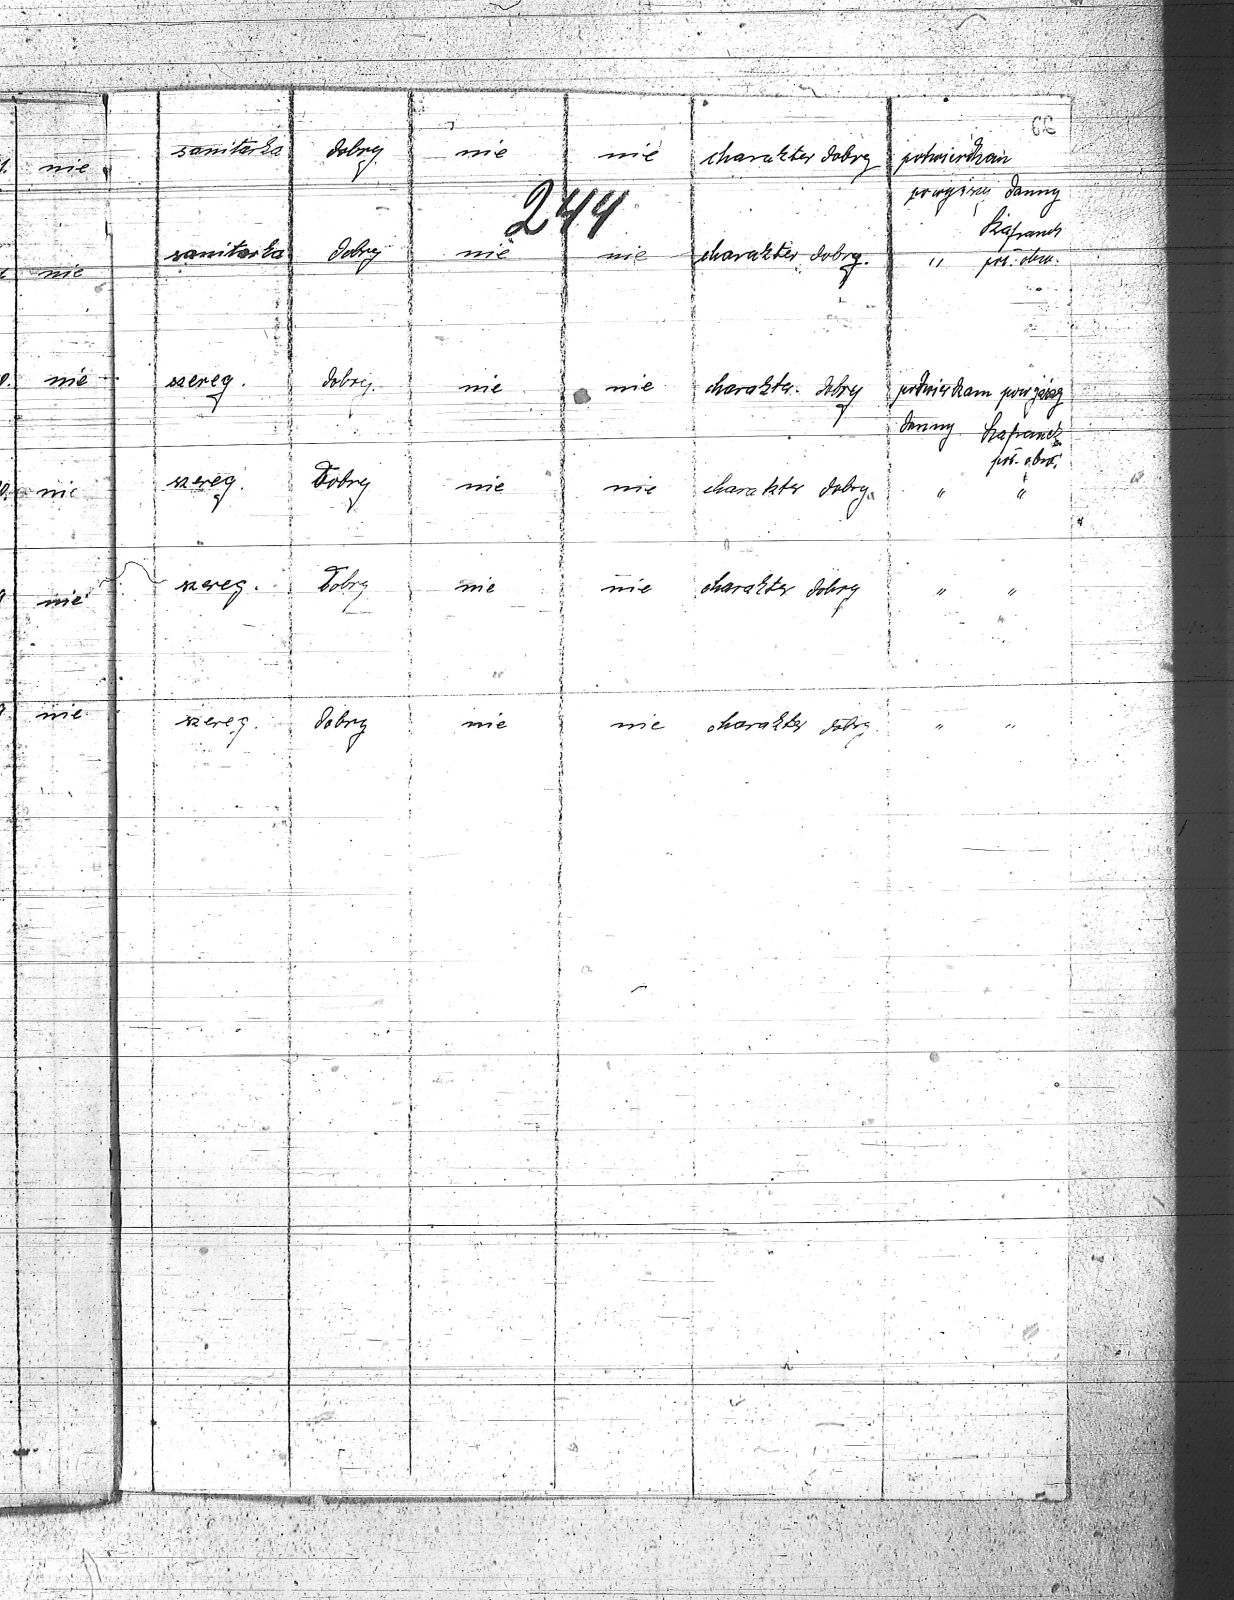 nie sanitarka dobry nie nie charakter dobry potwierdzam
powyższy danny
244
nie sanitarka dobry nie nie charakter dobry. " por. obw.
nie szereg. dobry nie nie charakter dobry potwierdzam powyższy
danny
nie szereg. Dobry nie nie charakter dobry. " "
nie szereg. Dobry nie nie charakter dobry " "
nie szereg. dobry nie nie charakter dobry " "